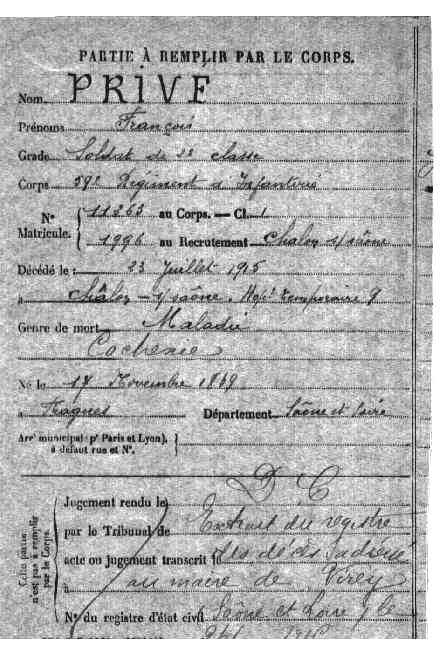 PARTIE À REMPLIR PAR LE CORPS.
Nom PRIVE
Prénoms François
Grade Soldat de 2e classe
Corps 59e Régiment d'Infanterie
Nº Matricule. { 11263 au Corps. — Cl.
1996 au Recrutement Chalon s/saône
Décédé le : 23 Juillet 1915
a Châlon - s/saône. Hôpl temporaire 9
Genre de mort Maladie
Cachexie
Né le 17 Novembre 1869
a Fragnes Département Saône et Loire
Arrt municipal (pr Paris et Lyon), }
à défaut rue et Nº.
D C
Cette partie n'est pas à remplir par le Corps.
Jugement rendu le
par le Tribunal de Extrait du registre
acte ou jugement transcrit le des décès
à au maire de Virey
Nº du registre d'état civil Saône et Loire le